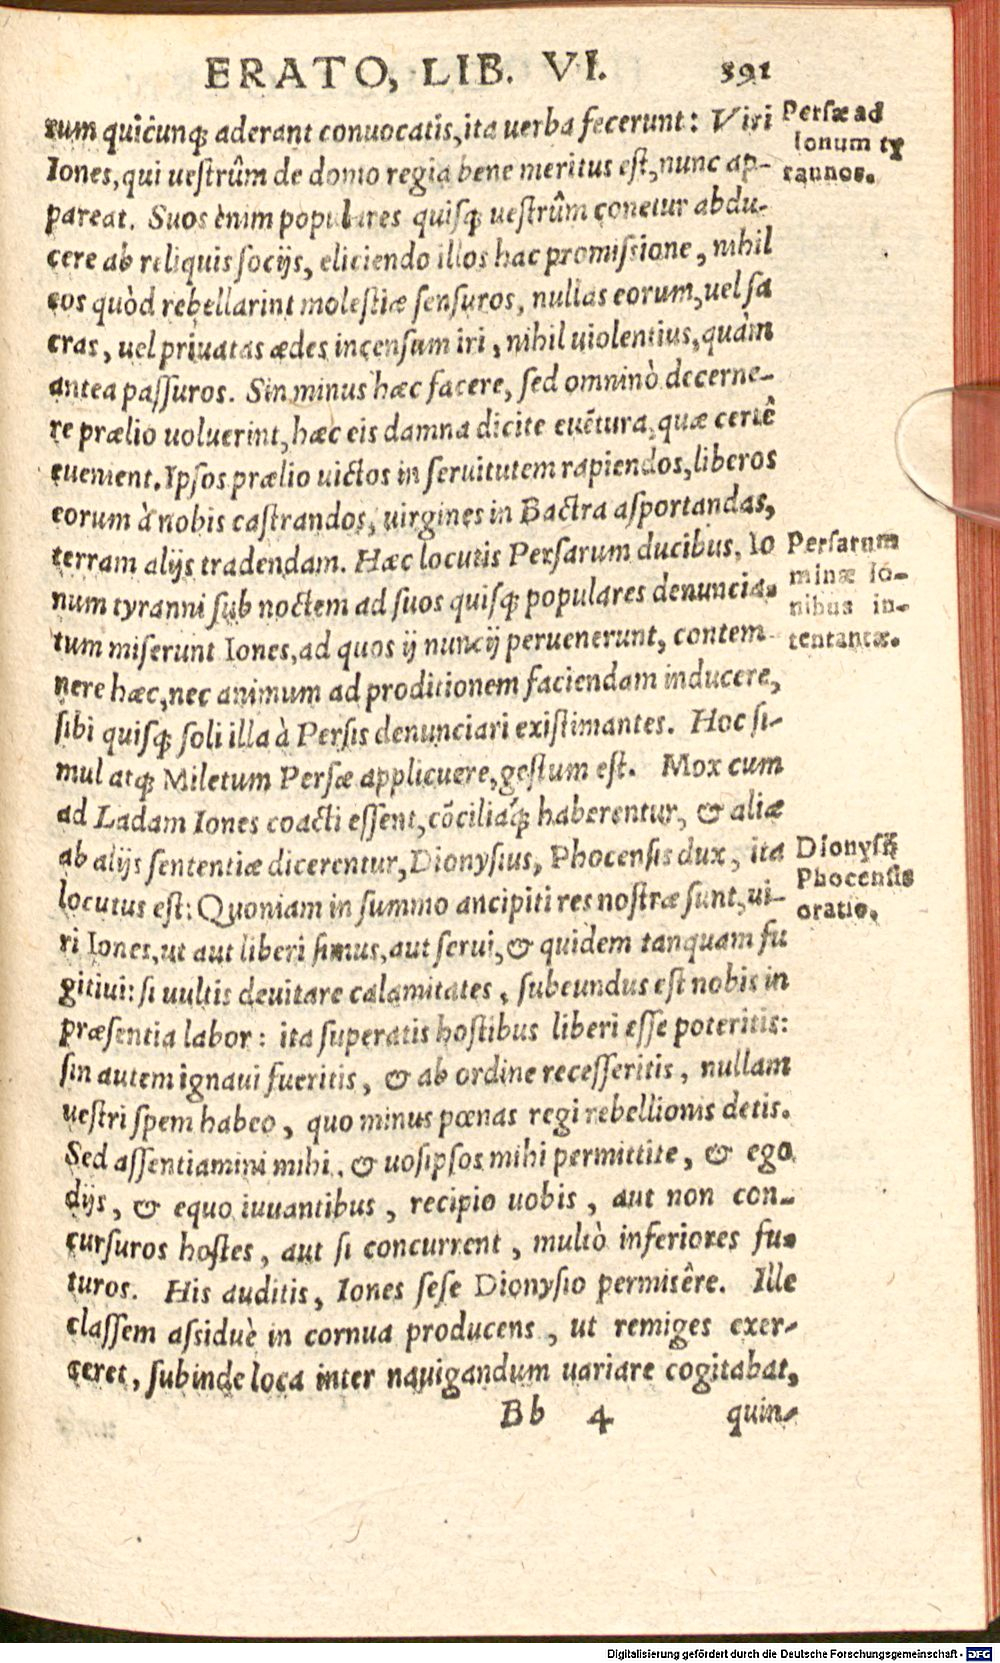 ERATO, LIB. VI. 391
rum quicunq; aderant conuocatis, ita uerba fecerunt: Viri
Iones, qui uestrûm de domo regia bene meritus est, nunc ap-
pareat. Suos enim populares quisq; uestrûm conetur abdu-
cere ab reliquis socijs, eliciendo illos hac promissione, nihil
eos quòd rebellarint molestiæ sensuros, nullas eorum, uel sa
cras, uel priuatas ædes incensum iri, nihil uiolentius, quàm
antea passuros. Sin minus hæc facere, sed omninò decerne-
re prælio uoluerint, hæc eis damna dicite euētura, quæ certè
euenient. Ipsos prælio uictos in seruitutem rapiendos, liberos
eorum à nobis castrandos, uirgines in Bactra asportandas,
terram alijs tradendam. Hæc locutis Persarum ducibus, Io
num tyranni sub noctem ad suos quisq; populares denuncia-
tum miserunt Iones, ad quos ij nuncij peruenerunt, contem
nere hæc, nec animum ad proditionem faciendam inducere,
sibi quisq; soli illa à Persis denunciari existimantes. Hoc si-
mul atq; Miletum Persæ applicuere, gestum est. Mox cum
ad Ladam Iones coacti essent, cōciliaq́; haberentur, & aliæ
ab alijs sententiæ dicerentur, Dionysius, Phocensis dux, ita
locutus est: Quoniam in summo ancipiti res nostræ sunt, ui-
ri Iones, ut aut liberi simus, aut serui, & quidem tanquam fu
gitiui: si uultis deuitare calamitates, subeundus est nobis in
præsentia labor: ita superatis hostibus liberi esse poteritis:
sin autem ignaui fueritis, & ab ordine recesseritis, nullam
uestri spem habeo, quo minus pœnas regi rebellionis detis.
Sed assentiamini mihi, & uosipsos mihi permittite, & ego
dijs, & equo iuuantibus, recipio uobis, aut non con-
cursuros hostes, aut si concurrent, multò inferiores fu-
turos. His auditis, Iones sese Dionysio permisêre. Ille
classem assiduè in cornua producens, ut remiges exer-
ceret, subinde loca inter nauigandum uariare cogitabat,
Bb 4 quin-
Persæ ad
Ionum ty
rannos.
Persarum
minæ Io-
nibus in-
tentantæ.
Dionysij
Phocensis
oratio.
Digitalisierung gefördert durch die Deutsche Forschungsgemeinschaft - DFG